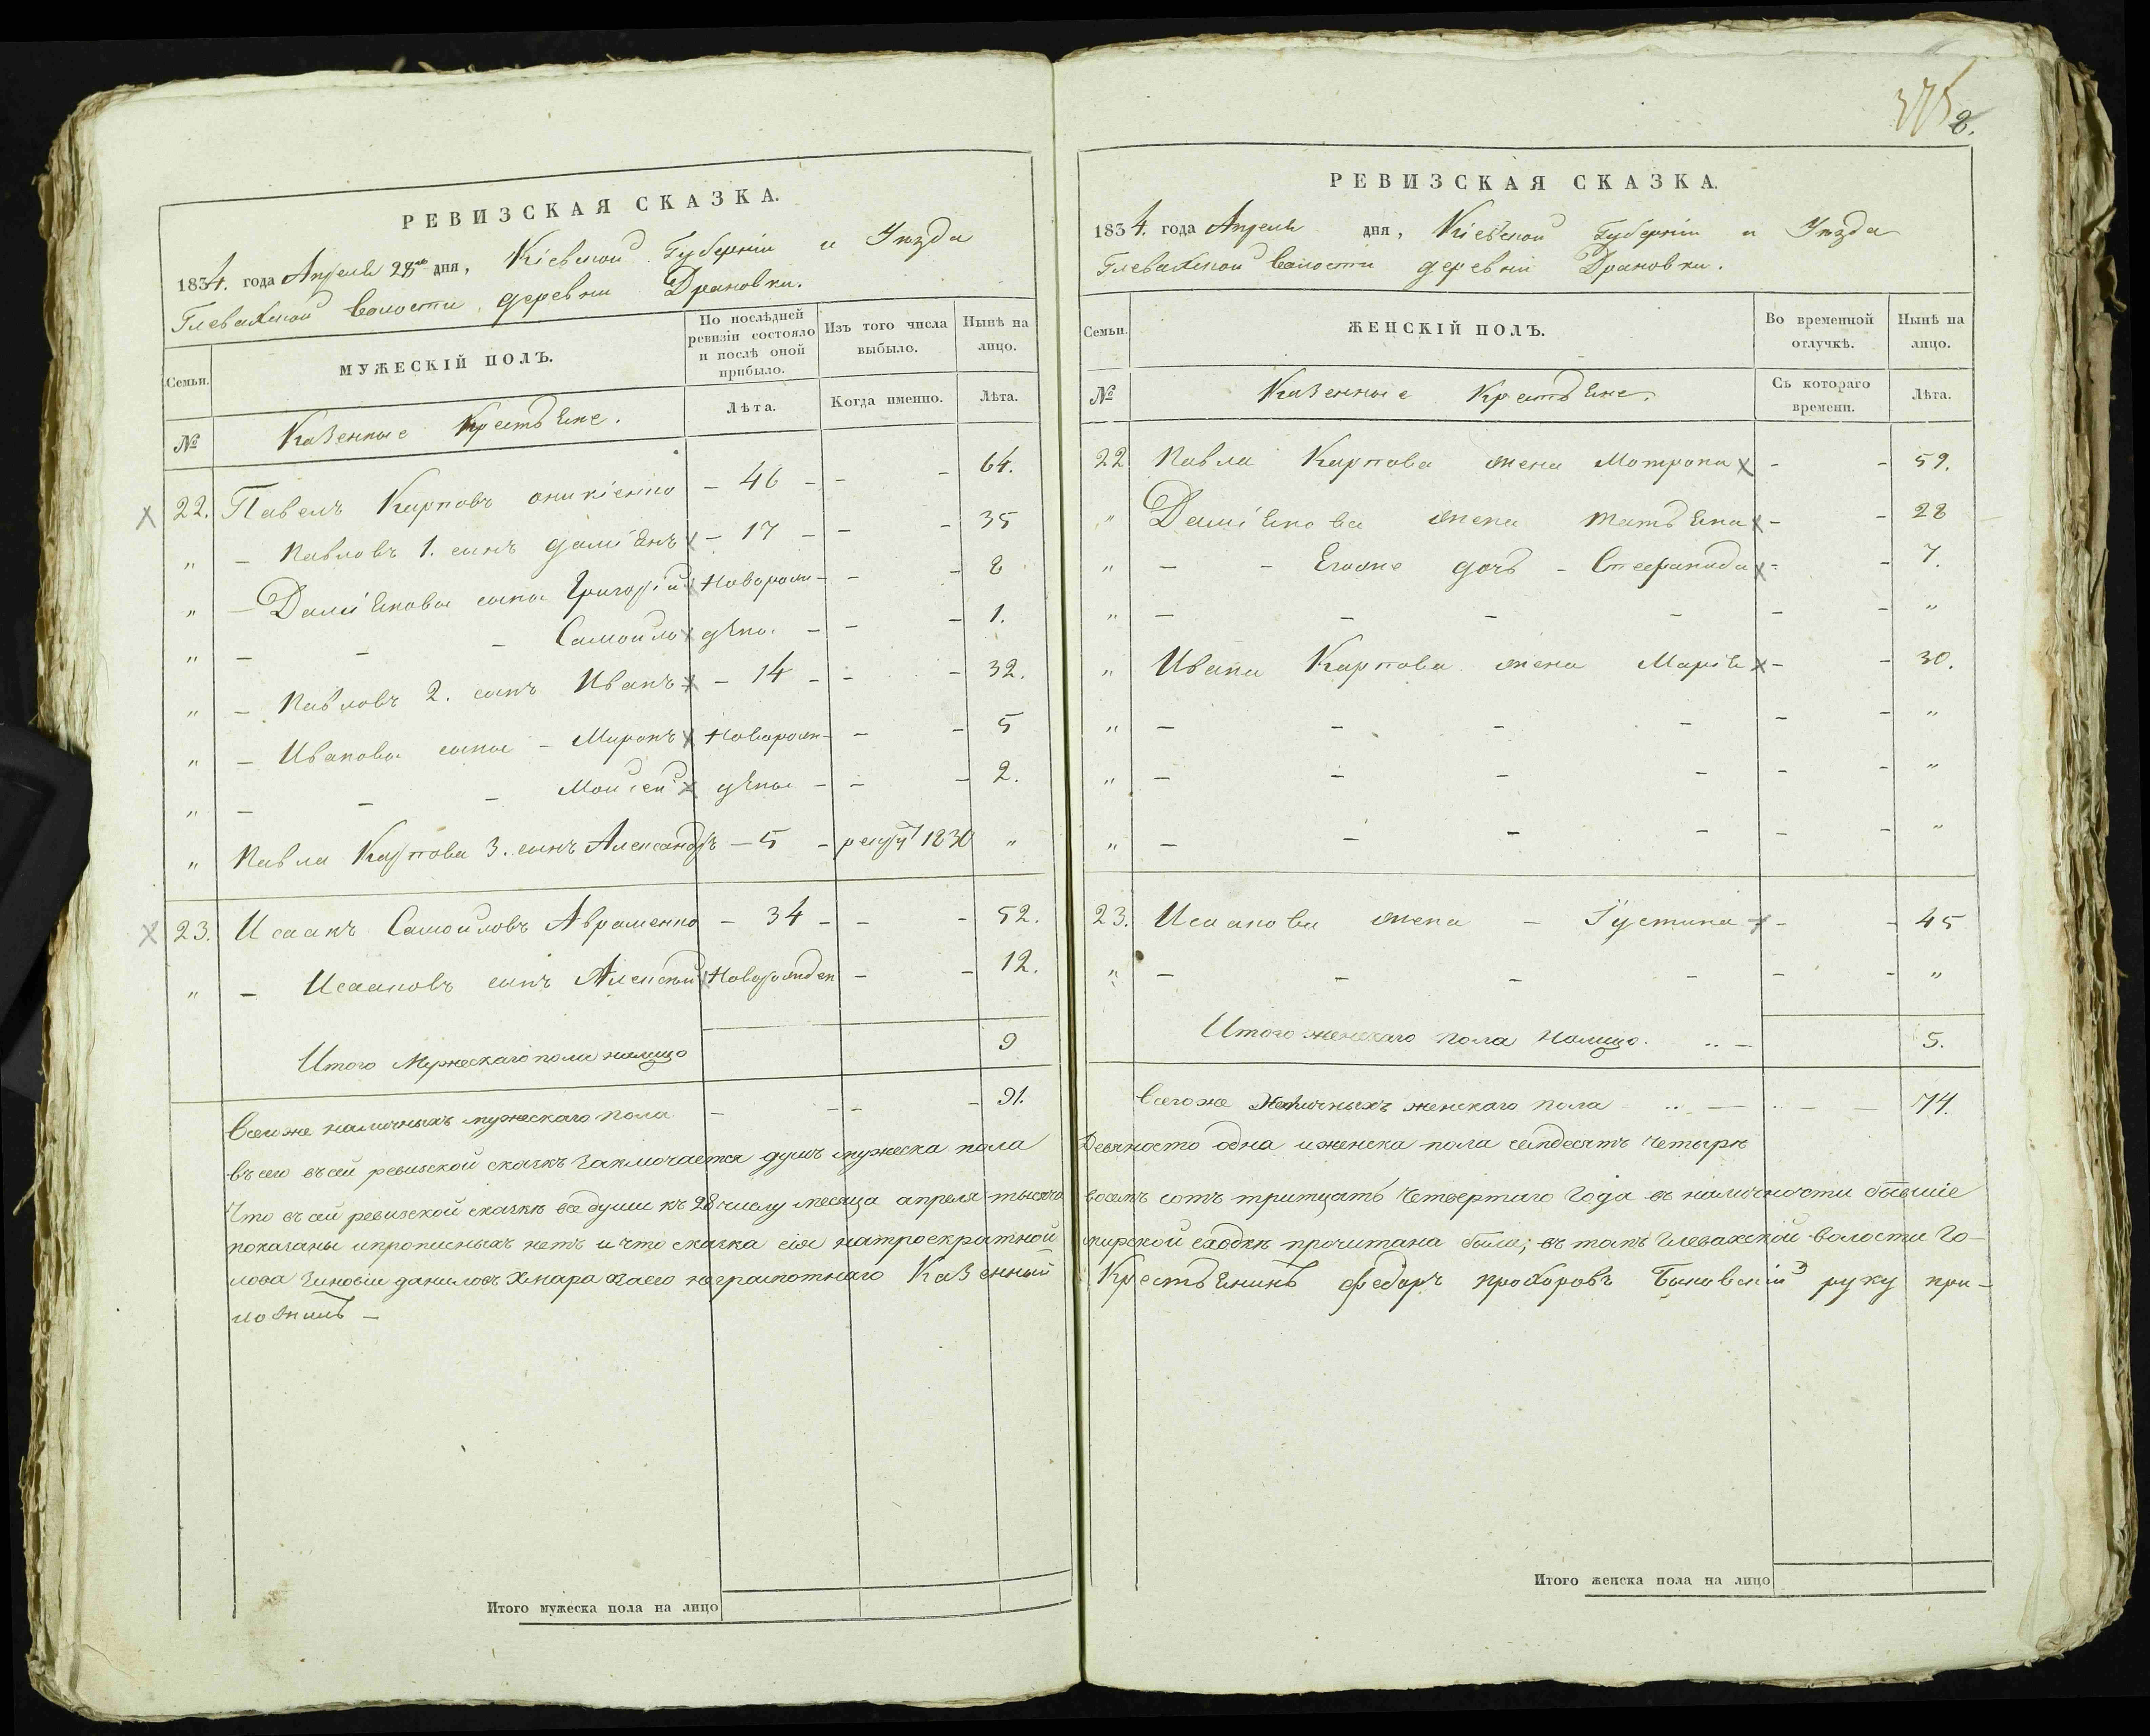 375
8.
РЕВИЗСКАЯ СКАЗКА.
1834. года Апреля 28го дня, Кіевской Губерніи и Уѣзда
Глевахской волости деревни Драновки.
Семьи.
МУЖЕСКІЙ ПОЛЪ.
По послѣдней ревизіи состояло и послѣ оной прибыло.
Изъ того числа выбыло.
Нынѣ на лицо.
№
Казенные Крестьяне.
Лѣта.
Когда именно.
Лѣта.
22. Павелъ Карповъ Оникіенко - 46 - - - 64.
" - Павловъ 1. сынъ Даміянъ - 17 - - - 35
" - Даміяновы сыны Григорій Новорож- - - 8
" - - - Самойло дѣны. - - - 1.
" - Павловъ 2. сынъ Иванъ - 14 - - - 32.
" - Ивановы сыны - Миронъ Новорож- - - 5
" - - - Мойсей дѣны - - - 2.
" Павла Карпова 3. сынъ Александръ - 5 - рекрут 1830 "
23. Исаакъ Самойловъ Авраменко - 34 - - - 52.
" - Исааковъ сынъ Алексѣй Новорожден - - 12.
Итого Мужескаго пола налицо 9
Всеи же наличныхъ мужескаго пола - - - - 91.
РЕВИЗСКАЯ СКАЗКА.
1834. года Апреля дня, Кіевской Губерніи и Уѣзда
Глевахской волости деревни Драновки.
Семьи.
ЖЕНСКІЙ ПОЛЪ.
Во временной отлучкѣ.
Нынѣ на лицо.
№
Казенные Крестьяне.
Съ котораго времени.
Лѣта.
22 Павла Карпова жена Мотрона - - 59.
" Даміянова жена Татьяна - - 28
" - - Егоже дочь - Стефанида - - 7.
" - - - - - - "
" Ивана Карпова жена Марія - - 30.
" - - - - - - "
" - - - - - - "
" - - - - - - "
23. Исаакова жена - Іустина - - 45
" - - - - - - "
Итого женскаго пола налицо. 5.
Всего же наличныхъ женскаго пола 74.
въсего въсей ревизской сказкѣ заключается душъ мужеска пола Девяносто одна и женска пола семдесятъ четыре
Что въсей ревизской сказкѣ все души къ 28 числу месяца апреля тысяча восемъ сотъ тритцать четвертаго года въ наличности бывшіе
показаны и прописныхъ нетъ и что сказка сія на троекратной мирской сходкѣ прочитана была; въ томъ Глевахской волости Го-
лова Зиновій Даниловъ Хмара а за его неграмотнаго Казенный Крестьянинъ Федоръ Прохоровъ руку при-
ложилъ -
Итого мужеска пола на лицо
Итого женска пола на лицо